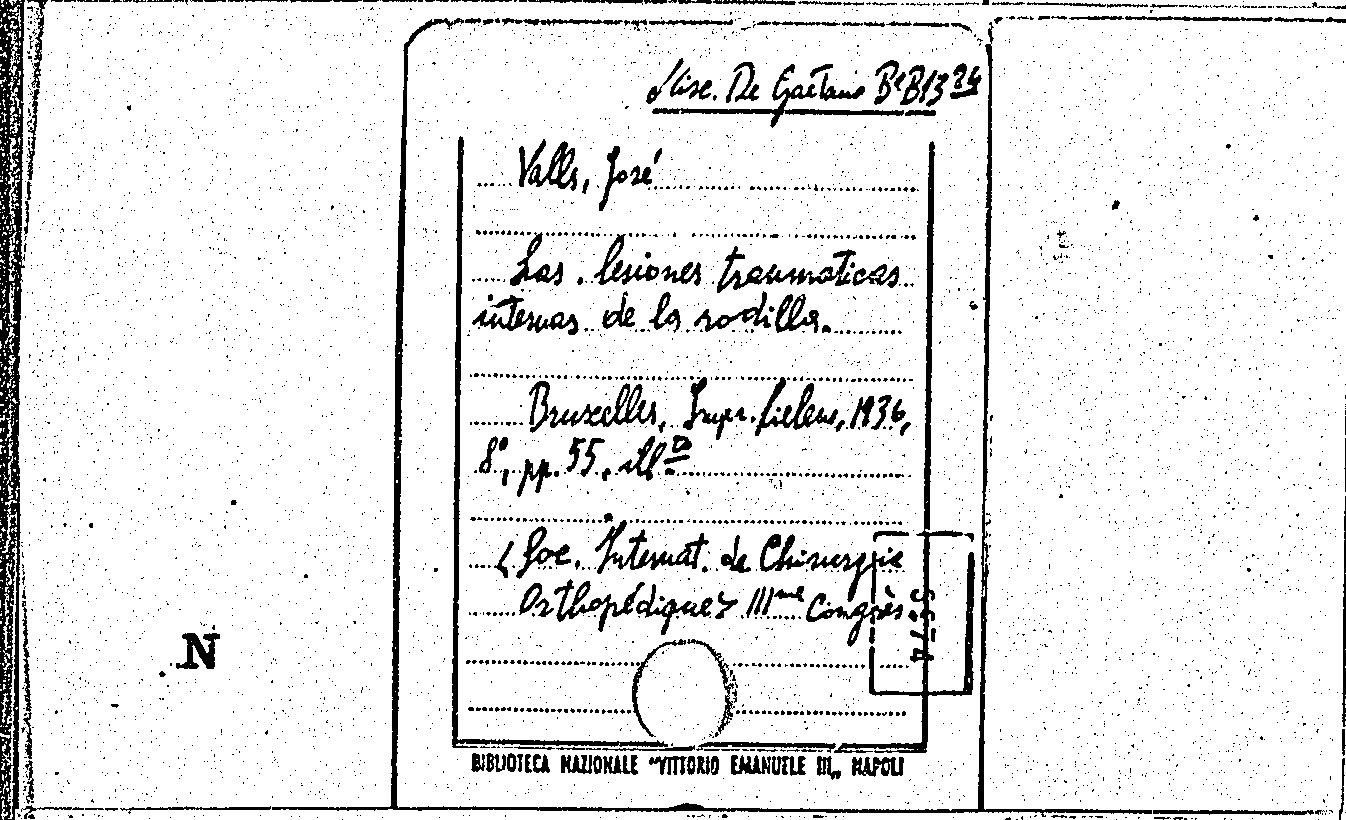 Misc. De Gaetano B<sup>e</sup>B13 <sup>24</sup>
Valls, José
Las lesiones traumaticas
internas de la rodilla.
Bruxelles, Impr. Lielens, 1936,
8°, pp. 55, ill<sup>o</sup>
< Soc. Internat. de Chirurgie
Orthopédique > III<sup>me</sup> Congrès
N
BIBLIOTECA NAZIONALE "VITTORIO EMANUELE III„ NAPOLI